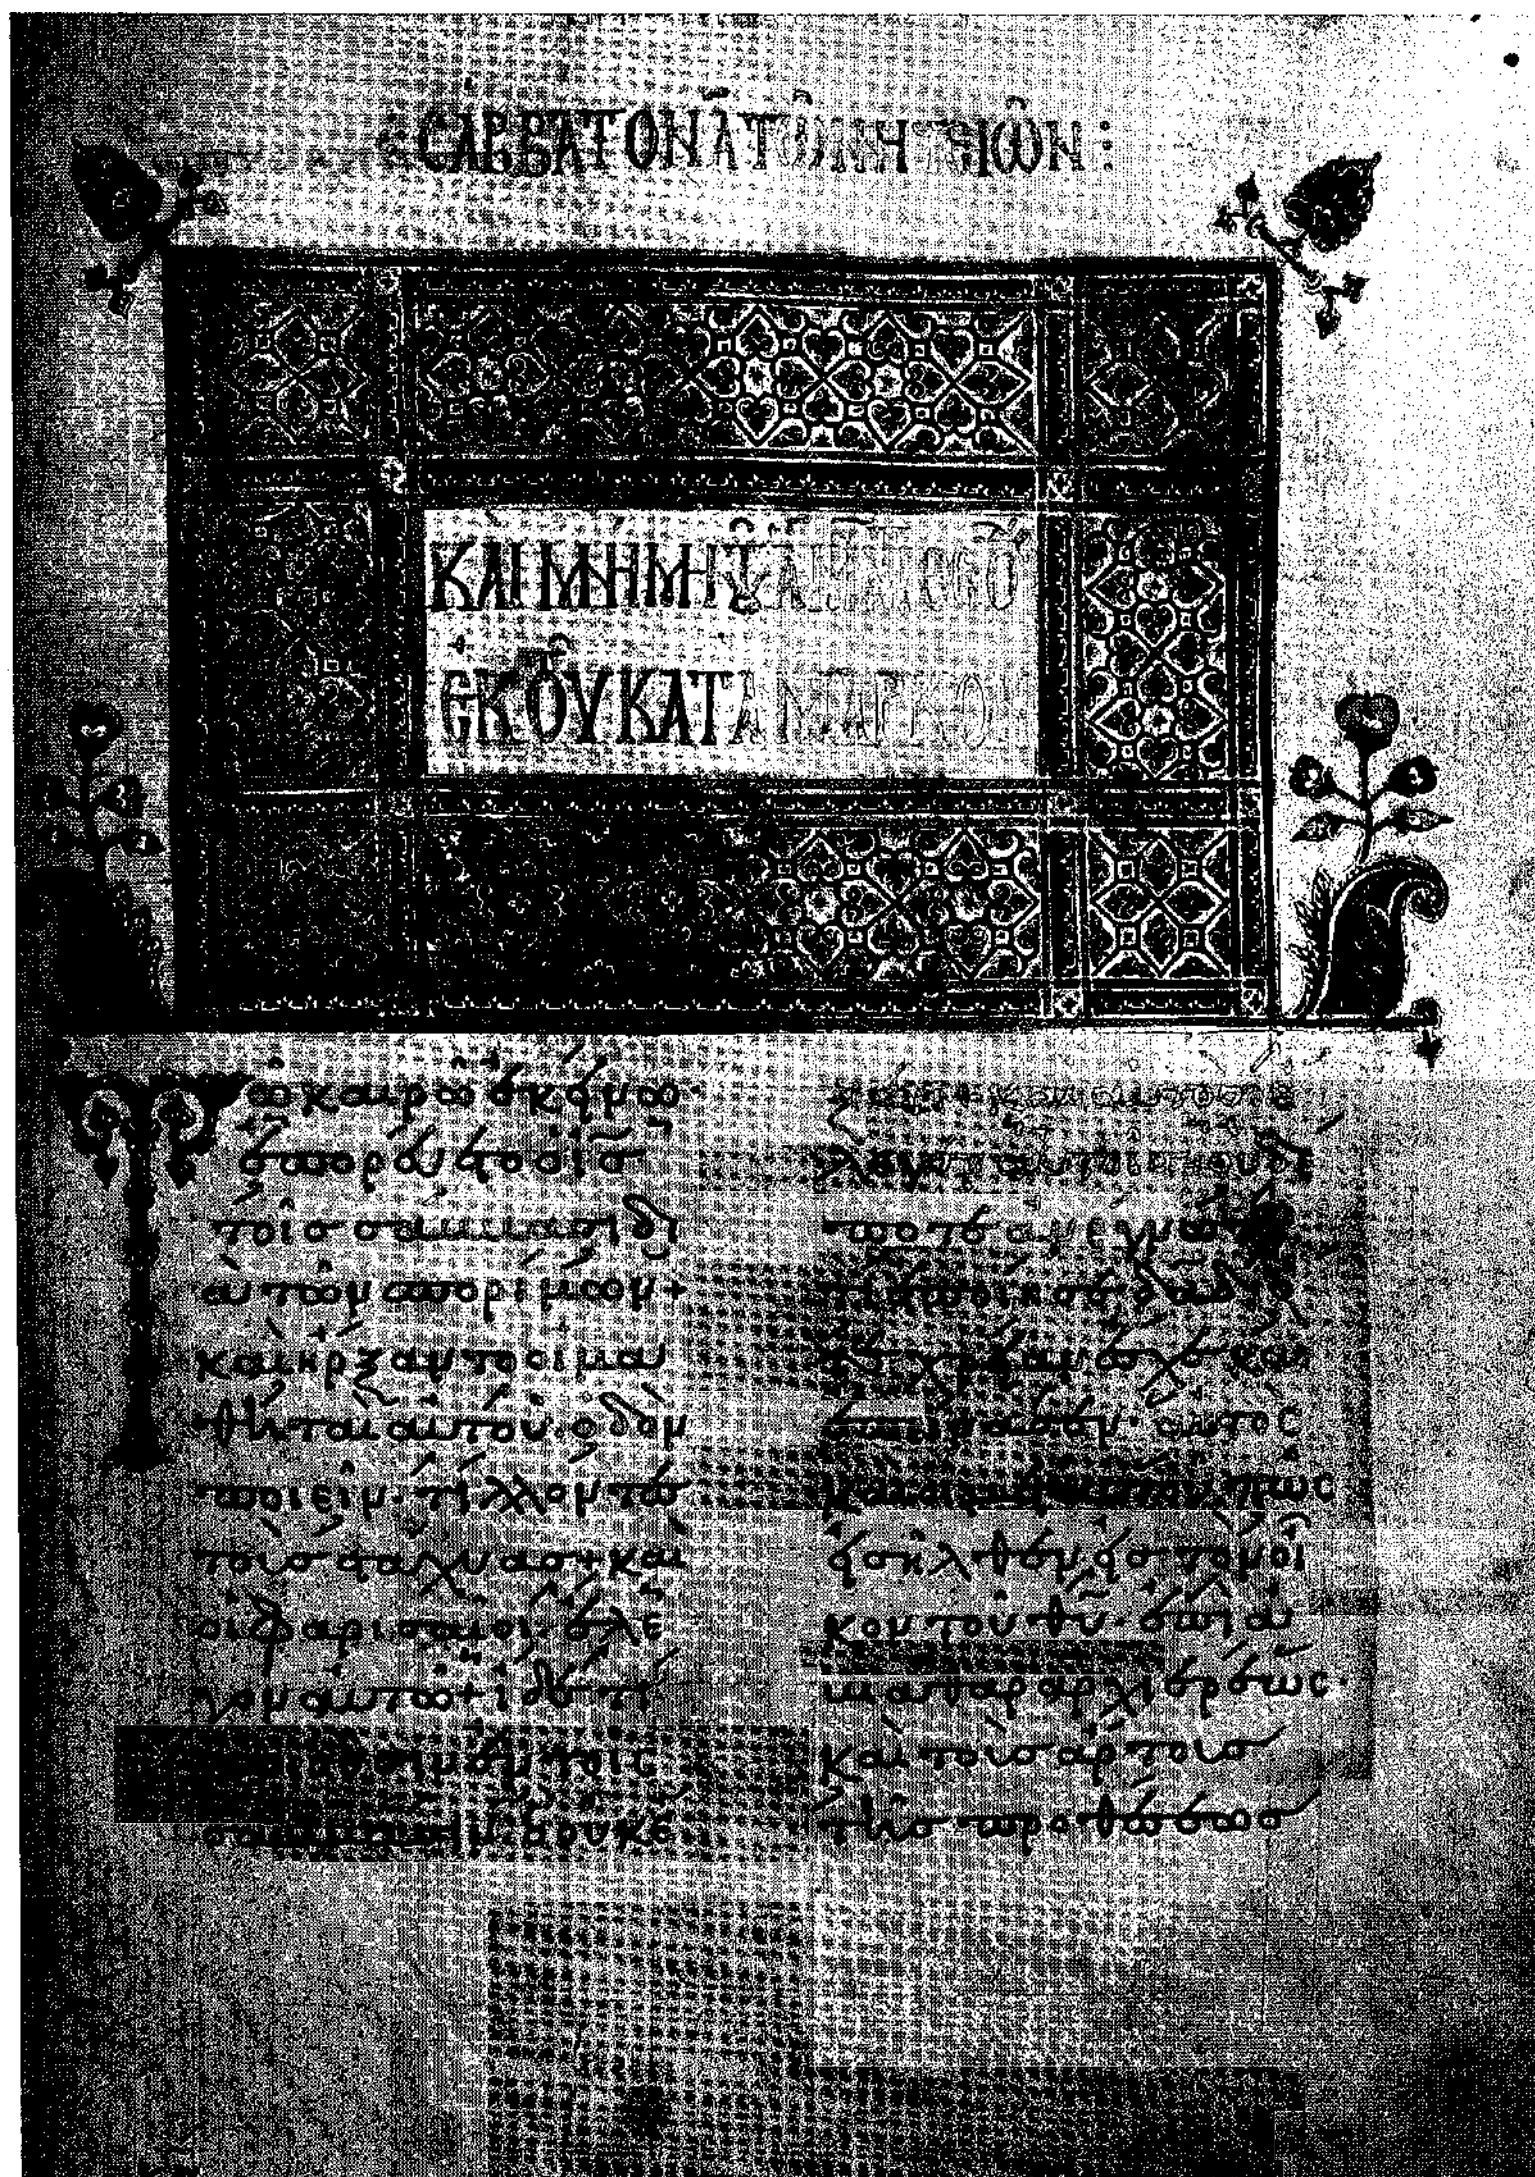 ϹΑΒΒΑΤΟΝ Α ΤΩΝ ΝΗϹΤΕΙΩΝ :
ΚΑΙ ΜΝΗΜΗ
ΕΚ ΤΟΥ ΚΑΤΑ ΜΑΡΚΟΝ
Τῶ καιρῶ ἐκείνω·
ἐπορεύετο ὁ ἰς
τοῖς σάββασι δι
ὰ τῶν σπορίμων+
καὶ ἤρξαντο οἱ μα
θηταὶ αὐτοῦ· ὁδὸν
ποιεῖν· τίλλοντες
τοὺς στάχυας+ καὶ
οἱ φαρισαῖοι· ἔλε
γον αὐτῶ+ ἴδε τί
ποιοῦσιν ἐν τοῖς
σάββασιν· ὃ οὐκ ἔ
ξεστι· καὶ αὐτὸς ἔ
λεγεν αὐτοῖς+ οὐδέ
ποτε ἀνέγνωτε
τί ἐποίησε δαδ· ὅ
τε χρείαν ἔσχε καὶ
ἐπείνασεν· αὐτὸς
καὶ οἱ μετ' αὐτοῦ· πῶς
εἰσῆλθεν εἰς τὸν οἶ
κον τοῦ θυ· ἐπὶ ἀ
βιάθαρ ἀρχιερέως·
καὶ τοὺς ἄρτους
τῆς προθέσεως